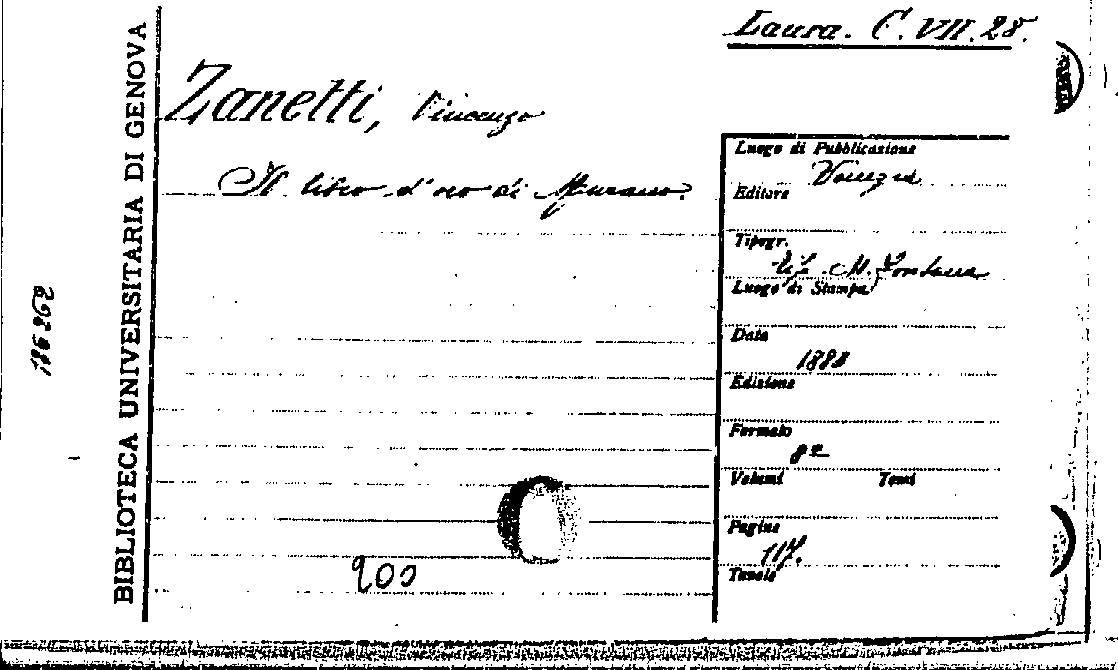 Laura. C.VII.28.
BIBLIOTECA UNIVERSITARIA DI GENOVA
Zanetti, Vincenzo
Il libro d'oro di Murano.
Luogo di Pubblicazione
Venezia
Editore
Tipogr.
tip. M. Fontana
Luogo di Stampa
Data
Edizione
Formato
8º
Volumi Tomi
Pagine
117.
Tavole
200